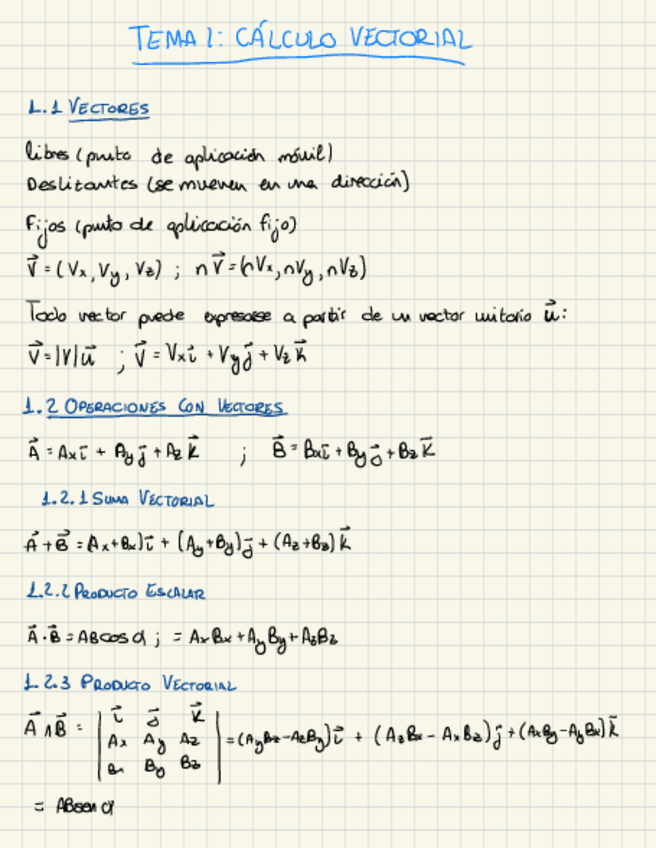 TEMA 1: CÁLCULO VECTORIAL
1.1 VECTORES
libres (punto de aplicación móvil)
Deslizantes (se mueven en una dirección)
Fijos (punto de aplicación fijo)
V⃗ = (Vx, Vy, Vz) ; n V⃗ = (nVx, nVy, nVz)
Todo vector puede expresarse a partir de un vector unitario u⃗:
V⃗ = |V| u⃗ ; V⃗ = Vx i⃗ + Vy j⃗ + Vz k⃗
1.2 OPERACIONES CON VECTORES
A⃗ = Ax i⃗ + Ay j⃗ + Az k⃗ ; B⃗ = Bx i⃗ + By j⃗ + Bz k⃗
1.2.1 SUMA VECTORIAL
A⃗ + B⃗ = (Ax+Bx) i⃗ + (Ay+By) j⃗ + (Az+Bz) k⃗
1.2.2 PRODUCTO ESCALAR
A⃗ · B⃗ = AB cos α ; = AxBx + AyBy + AzBz
1.2.3 PRODUCTO VECTORIAL
i⃗ j⃗ k⃗
A⃗ ∧ B⃗ = | Ax Ay Az | = (AyBz - AzBy) i⃗ + (AzBx - AxBz) j⃗ + (AxBy - AyBx) k⃗
Bx By Bz
= AB sen α